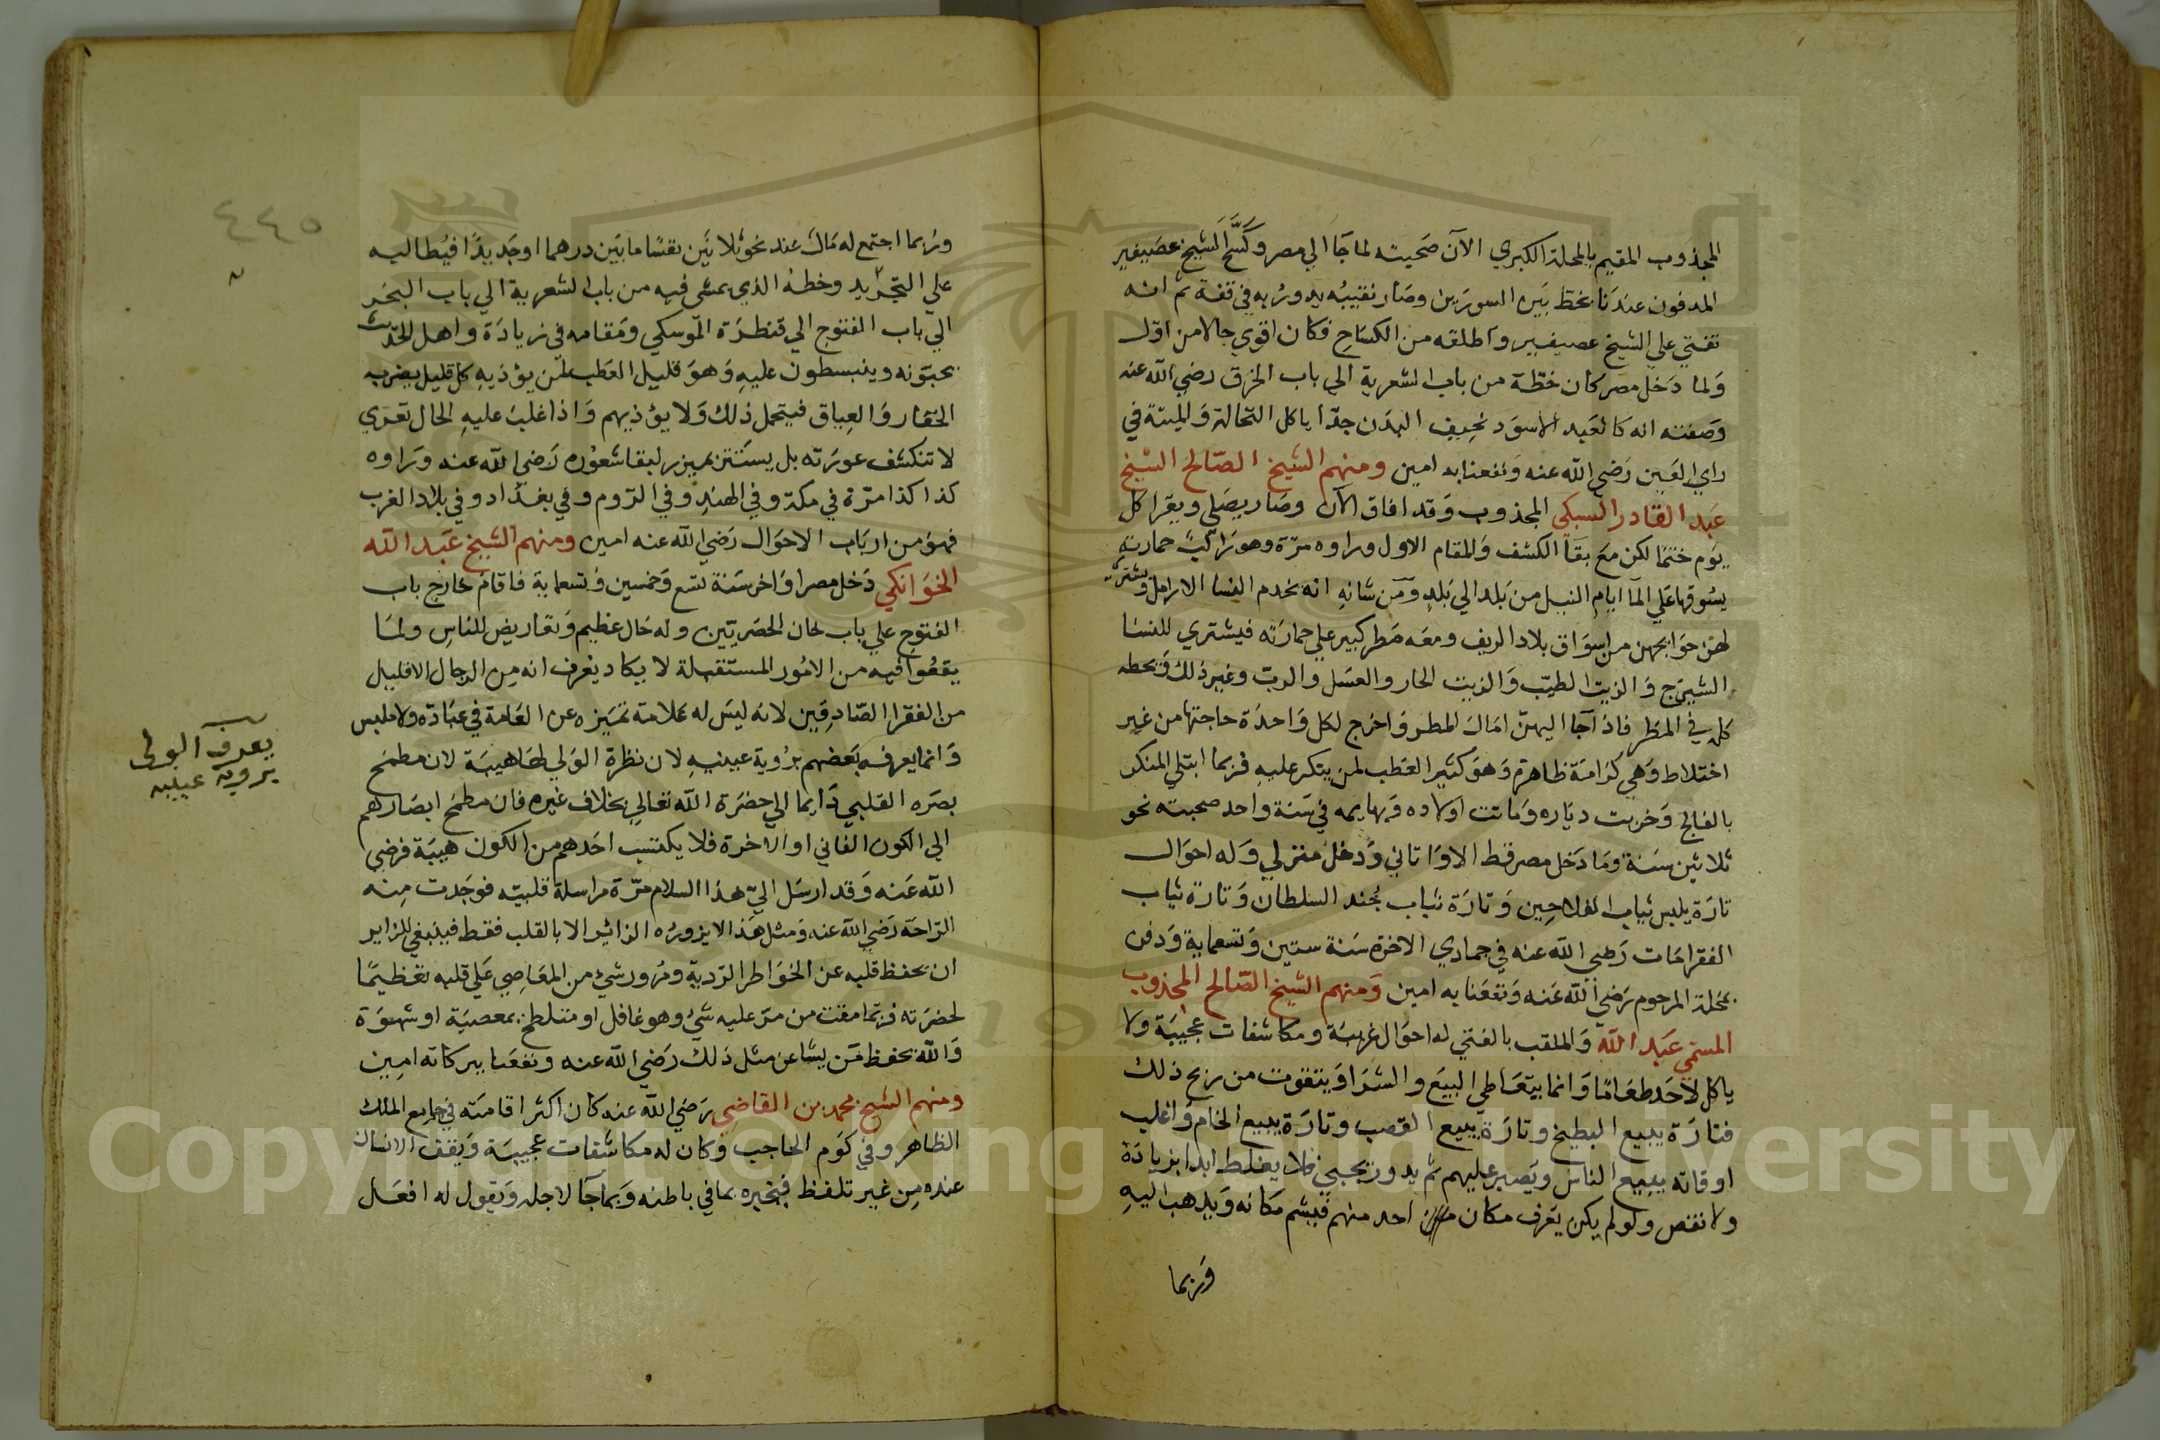 المجذوب المقيم بالمحلة الكبري الآن صحبته لما جا الي مصر وكسّح الشيخ عصيفير
المدفون عندنا بخط بين السورين وصار نقيبه يدور به في قفة ثم انه
تفتي علي الشيخ عصيفير واطلقه من الكساح فكان اقوي حالا من اول
ولما دخل مصر كان خطة من باب الشعرية الي باب الخرق رضي الله عنه
وصفته انه كالعبد الاسود نحيف البدن جدّا ياكل النخالة والميتة في
راي العين رضي الله عنه ونفعنا به امين ومنهم الشيخ الصالح الشيخ
عبد القادر السبكي المجذوب وقد افاق الآن وصار يصلي ويقرا كل
يوم ختما لكن مع بقا الكشف والمقام الاول وراوه مرّة وهو راكبٌ حمارته
يسوقها علي الما ايام النيل من بلد الي بلد ومن شانه انه يخدم النسا الارامل ويشتري
لهن حوايجهن من اسواق بلاد الريف ومعه مطر كبير علي حمارته فيشتري للنسا
الشيرج والزيت الطيب والزيت الحار والعسل والرب وغير ذلك ويحطه
كله في المطر فاذا جا اليهنّ امال المطر واخرج لكل واحدة حاجتها من غير
اختلاط وهي كرامة ظاهرة وهو كثير العطب لمن ينكر عليه فربما ابتلي المنكر
بالفالج وخربت دياره وماتت اولاده وبهايمه في سنة واحد صحبته نحو
ثلاثين سنة وما دخل مصر قط الا واتاني ودخل منزلي وله احوال
تارة يلبس ثياب الفلاحين وتارة ثياب جند السلطان وتارة ثياب
الفقرا مات رضي الله عنه في جمادي الاخرة سنة ستين وتسعماية ودفن
بمحلة المرحوم رضي الله عنه ونفعنا به امين ومنهم الشيخ الصالح المجذوب
المسمي عبد الله والملقب بالفتي له احوال غريبة ومكاشفات عجيبة ولا
ياكل لاحد طعاما وانما يتعاطي البيع والشرا ويتقوت من ربح ذلك
فتارة يبيع البطيخ وتارة يبيع القصب وتارة يبيع الخام واغلب
اوقاته يبيع الناس ويصبر عليهم ثم يدور يجبي فلا يغلط ابدا بزيادة
ولا نقص ولو لم يكن يعرف مكان احد منهم فيشم مكانه ويذهب اليه
وربما
٤٤٥
وربما اجتمع له مال عند نحو ثلاثين نفسا ما بين درهما او جديدًا فيطالبه
علي التجريد وخطه الذي يمشي فيه من باب الشعرية الي باب البحر
الي باب الفتوح الي قنطرة الموسكي ومقامه في زيادة واهل الخط
يحبونه وينبسطون عليه وهو قليل العطب لمن يؤذيه كل قليل يضربه
الخفار والعياق فيتحمل ذلك ولا يؤذيهم واذا غلب عليه الحال تعري
لا تنكشف عورته بل يستتر بميزر لبقا شعوره رضي الله عنه وراوه
كذا كذا مرّة في مكة وفي الهند وفي الروم وفي بغداد وفي بلاد الغرب
فهو من ارباب الاحوال رضي الله عنه امين ومنهم الشيخ عبد الله
الخوانكي دخل مصر اواخر سنة تسع وخمسين وتسعماية فاقام خارج باب
الفتوح علي باب لحان الحصريين وله حال عظيم وتعاريض للناس ولما
يقعوا فيه من الامور المستقبلة لا يكاد يعرف انه من الرجال الا قليل
من الفقرا الصادقين لانه ليس له علامة تميزه عن العامة في عبادة ولا ملبس
وانما يعرفه بعضهم بروية عينيه لان نظرة الولي لها هيبة لان مطمح
بصره القلبي دايما الي حضرة الله تعالي بخلاف غيره فان مطمح ابصارهم
الي الكون الفاني او الاخرة فلا يكتسب احدهم من الكون هيبة فرضي
الله عنه وقد ارسل اليّ هذا السلام مرّة مراسلة قلبية فوجدت منه
الراحة رضي الله عنه ومثل هذا لا يزوره الزائر الا بالقلب فقط فينبغي للزاير
ان يحفظ قلبه عن الخواطر الردية ومرور شيء من المعاصي علي قلبه تعظيمًا
لحضرته فربما مقت من مرّ عليه شيء وهو غافل او متلطخ بمعصية او شهوة
والله يحفظ من يشا عن مثل ذلك رضي الله عنه ونفعنا ببركاته امين
ومنهم الشيخ محمد بن القاضي رضي الله عنه كان اكثر اقامته في جامع الملك
الظاهر وفي كوم الحاجب وكان له مكاشفات عجيبة ويقف الانسان
عنده من غير تلفظ فيخبره بما في باطنه وبما جا لاجله ويقول له افعل
يعرف الولي
بروية عينيه
Copy © King Saud University